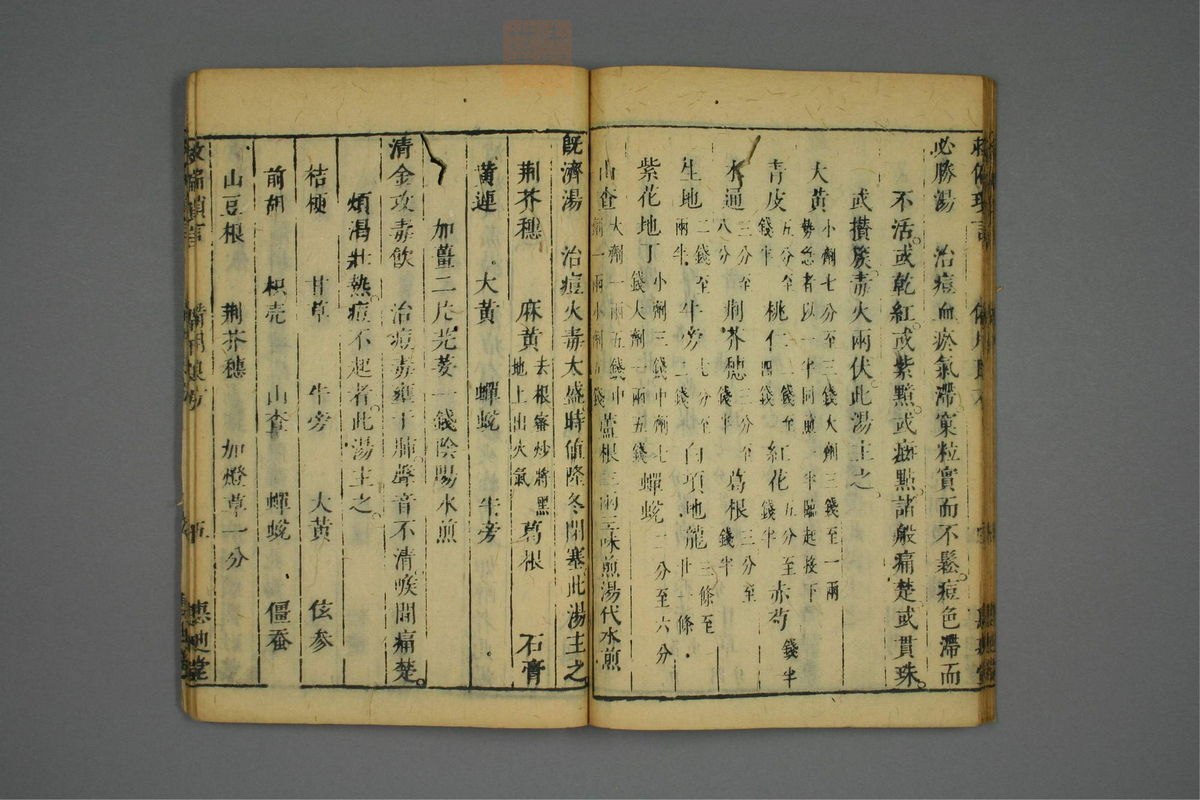 必勝湯　治痘血瘀氣滯窠粒實而不鬆痘色滯而
不活或乾紅或紫㸃或癍㸃諸般痛楚或貫珠
或攢簇毒火兩伏此湯主之
大黃 小劑七分至三錢大劑三錢至一兩 勢急者以一半同煎一半臨起投下
青皮 五分至錢半 桃仁 錢至四錢 紅花 五分至錢半 赤芍 錢半
木通 三分至八分 荆芥穗 三分至錢半 葛根 三分至錢半
生地 二錢至兩半 牛旁 七分至三錢 白項地龍 三條至廿一條
紫花地丁 小劑三錢中劑七錢大劑一兩五錢 蟬蛻 二分至六分
山查 大劑一兩五錢中劑一兩小劑五錢 蘆根三兩三味煎湯代水煎
旣濟湯　治痘火毒太盛時值隆冬閉塞此湯主之
荆芥穗　麻黃 去根蜜炒將黑地上出火氣 葛根　石膏
黃連　大黃　蟬蛻　牛旁
加薑二片芫荽一錢陰陽水煎
清金攻毒飲　治痘毒壅于肺聲音不清喉間痛楚
煩渴壯熱痘不起者此湯主之
桔梗　甘草　牛旁　大黃　伭參
前胡　枳壳　山查　蟬蛻　僵蚕
山豆根　荆芥穗　加燈草一分
救偏瑣言　備用良方　五　惠迪堂